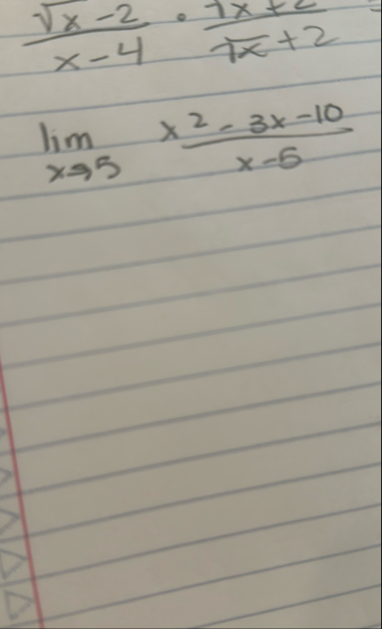 √x - 2 / x - 4 · √x + 2 / √x + 2 =
lim x→5 x² - 3x - 10 / x - 5